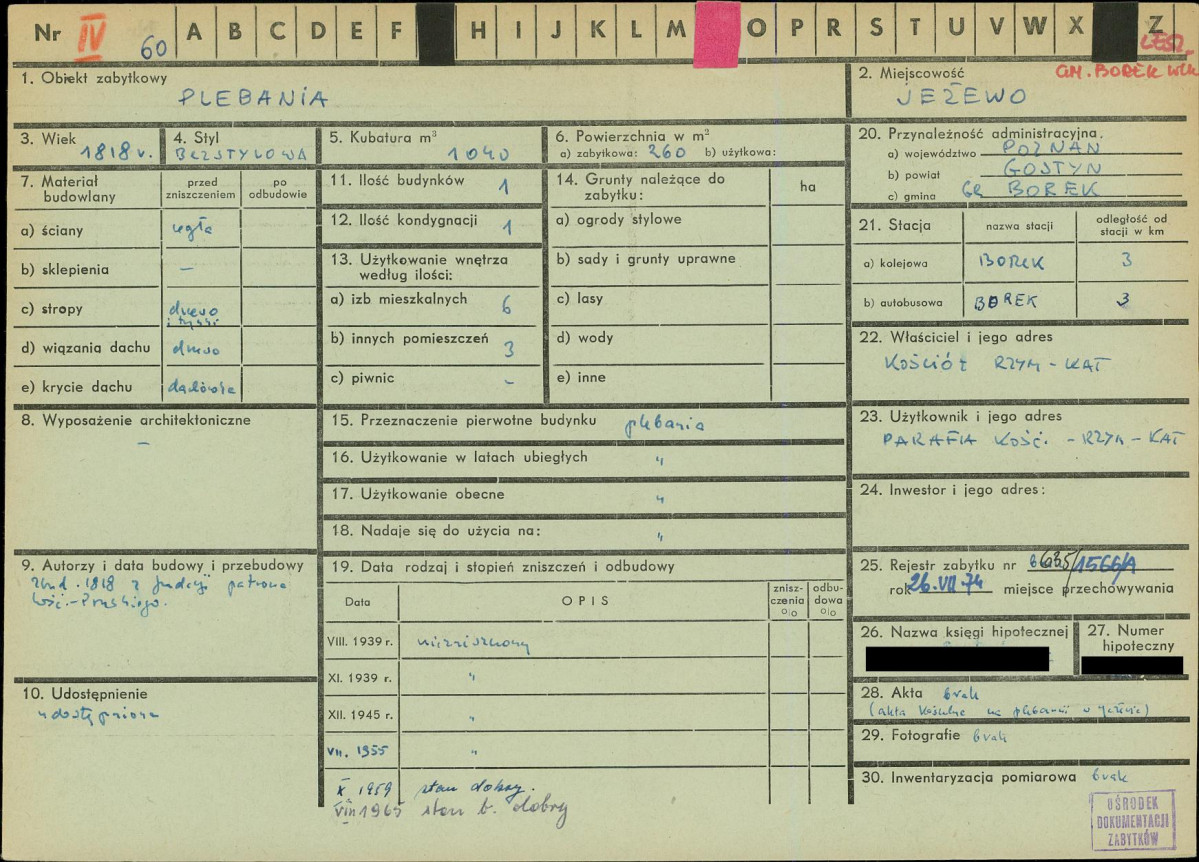 Nr IV 60 A B C D E F H I J K L M O P R S T U V W X Z
LESZ.
GM. BOREK WLK
1. Obiekt zabytkowy
PLEBANIA
2. Miejscowość
JEŻEWO
3. Wiek
1818 r.
4. Styl
BEZSTYLOWA
5. Kubatura m³
1040
6. Powierzchnia w m²
a) zabytkowa: 260 b) użytkowa:
7. Materiał budowlany
przed zniszczeniem
po odbudowie
a) ściany cegła
b) sklepienia –
c) stropy drewno
d) wiązania dachu drewno
e) krycie dachu dachówka
8. Wyposażenie architektoniczne
–
9. Autorzy i data budowy i przebudowy
zbud. 1818 z fundacji patrona
kość.
10. Udostępnienie
udostępniona
11. Ilość budynków 1
12. Ilość kondygnacji 1
13. Użytkowanie wnętrza
według ilości:
a) izb mieszkalnych 6
b) innych pomieszczeń 3
c) piwnic –
14. Grunty należące do
zabytku:
ha
a) ogrody stylowe
b) sady i grunty uprawne
c) lasy
d) wody
e) inne
15. Przeznaczenie pierwotne budynku plebania
16. Użytkowanie w latach ubiegłych "
17. Użytkowanie obecne "
18. Nadaje się do użycia na: "
19. Data rodzaj i stopień zniszczeń i odbudowy
Data OPIS znisz-
czenia
% odbu-
dowa
%
VIII. 1939 r. niezniszczony
XI. 1939 r. "
XII. 1945 r. "
VII. 1955 "
X 1959 stan dobry.
VIII 1965 stan b. dobry
20. Przynależność administracyjna.
a) województwo POZNAŃ
b) powiat GOSTYŃ
c) gmina GR BOREK
21. Stacja
nazwa stacji
odległość od
stacji w km
a) kolejowa BOREK 3
b) autobusowa BOREK 3
22. Właściciel i jego adres
KOŚCIÓŁ RZYM-KAT
23. Użytkownik i jego adres
PARAFIA KOŚĆ. - RZYM-KAT
24. Inwestor i jego adres:
25. Rejestr zabytku nr 1566/A
rok 26.VII.74 miejsce przechowywania
26. Nazwa księgi hipotecznej
27. Numer
hipoteczny
28. Akta brak
(akta kościelne na plebanii w Jeżewie)
29. Fotografie brak
30. Inwentaryzacja pomiarowa brak
OŚRODEK
DOKUMENTACJI
ZABYTKÓW